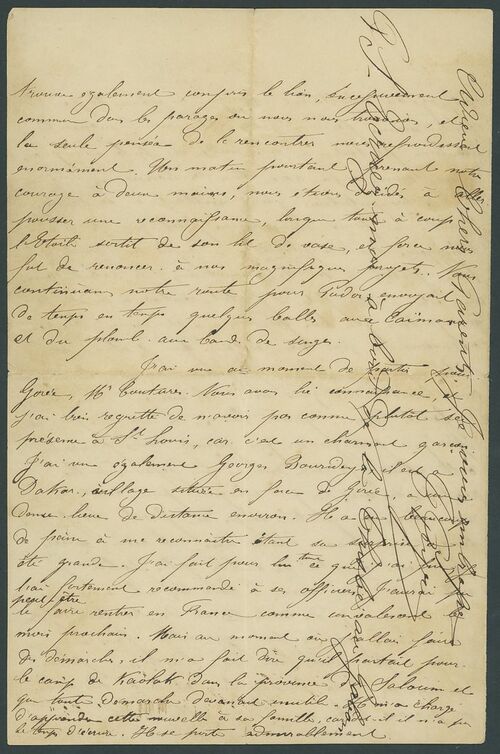 trouve également compris le lion, excessivement
commun dans les parages où nous nous trouvions, et
la seule pensée de le rencontrer nous refroidissait
énormément. Un matin pourtant prenant notre
courage à deux mains, nous étions décidés à aller
pousser une reconnaissance, lorsque tout à coup
l'Etoile sortit de son lit de vase, et force nous
fut de renoncer à nos magnifiques projets. Nous
continuâmes notre route pour Podor, envoyant
de temps en temps quelques balles aux Caïmans
et du plomb aux bands de singes.
J'ai vu au moment de partir pour
Gorée, Mr Toutares. Nous avons lié connaissance, et
j'ai bien regretté de n'avoir pas connu plutôt sa
présence à St Louis, car c'est un charmant garçon
J'ai vu également Georges il est à
Dakar, village situé en face de Gorée, à une
demi-lieue de distance environ. Il a eu beaucoup
de peine à me reconnaître tant sa surprise a
été grande. J'ai fait pour lui tout ce que j'ai pu
l'ai fortement recommandé à ses officiers. J'aurais
peut-être
le faire rentrer en France comme convalescent le
mois prochain. Mais au moment où j'allais faire
des démarches, il m'a fait dire qu'il partait pour
le camp de Kaolak dans la province Saloum et
que toute démarche devenait inutile. Il m'a chargé
d'apprendre cette nouvelle à sa famille, car il n'a pas
le temps d'écrire. Il se porte admirablement
Chers Parents, Je vous embrasse
P.S. Ecrivez moi à bord de